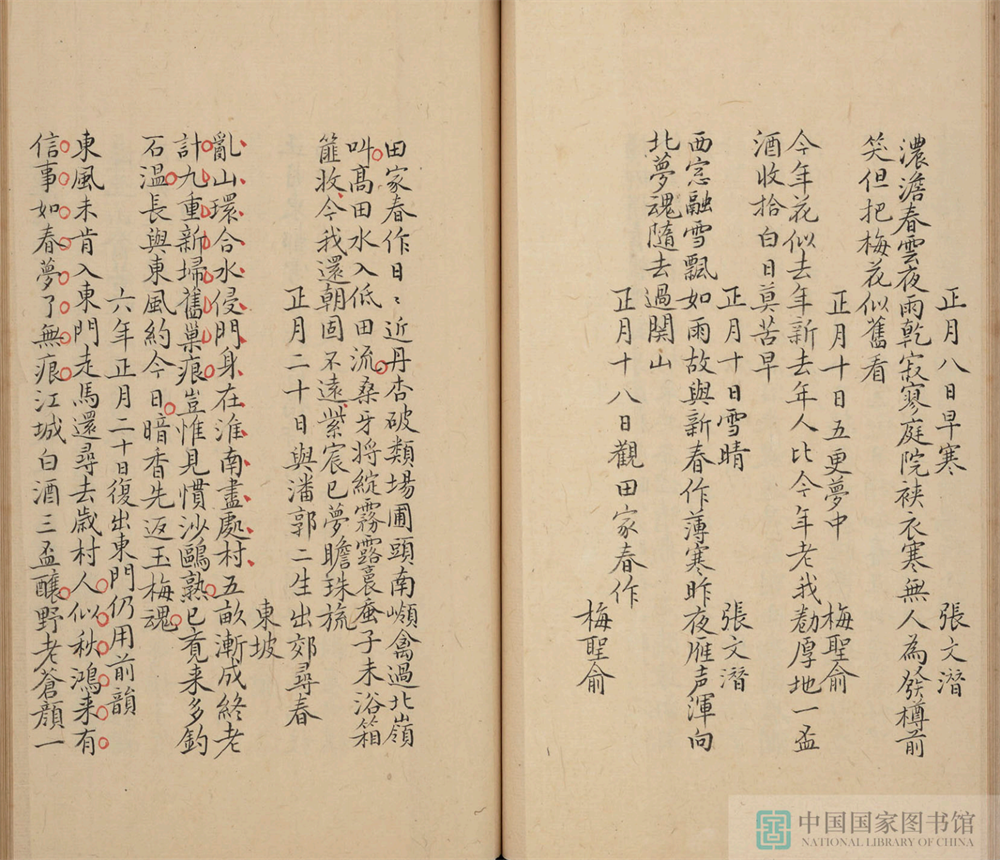 正月八日早寒 張文潛
濃澹春雲夜雨乾寂寥庭院裌衣寒無人為發樽前
笑但把梅花似舊看
正月十日五更夢中 梅聖俞
今年花似去年新去年人比今年老我勸厚地一盃
酒收拾白日莫苦早
正月十日雪晴 張文潛
西窓融雪飄如雨故與新春作薄寒昨夜雁声渾向
北夢魂隨去過関山
正月十八日觀田家春作 梅聖俞
田家春作日〻近丹杏破類場圃頭南嶺禽過北嶺
叫高田水入低田流桑牙將綻霧露裏蚕子未浴箱
籬收今我還朝固不遠紫宸已夢瞻珠旒
正月二十日與潘郭二生出郊尋春
東坡
亂山環合水侵門身在淮南盡處村五畝漸成終老
計九重新埽舊巢痕豈惟見慣沙鷗熟已竟来多釣
石溫長與東風約今日暗香先返玉梅魂
六年正月二十日復出東門仍用前韻
東風未肯入東門走馬還尋去歲村人似秋鴻来有
信事如春夢了無痕江城白酒三盃釅野老蒼顏一
中国国家图书馆
NATIONAL LIBRARY OF CHINA